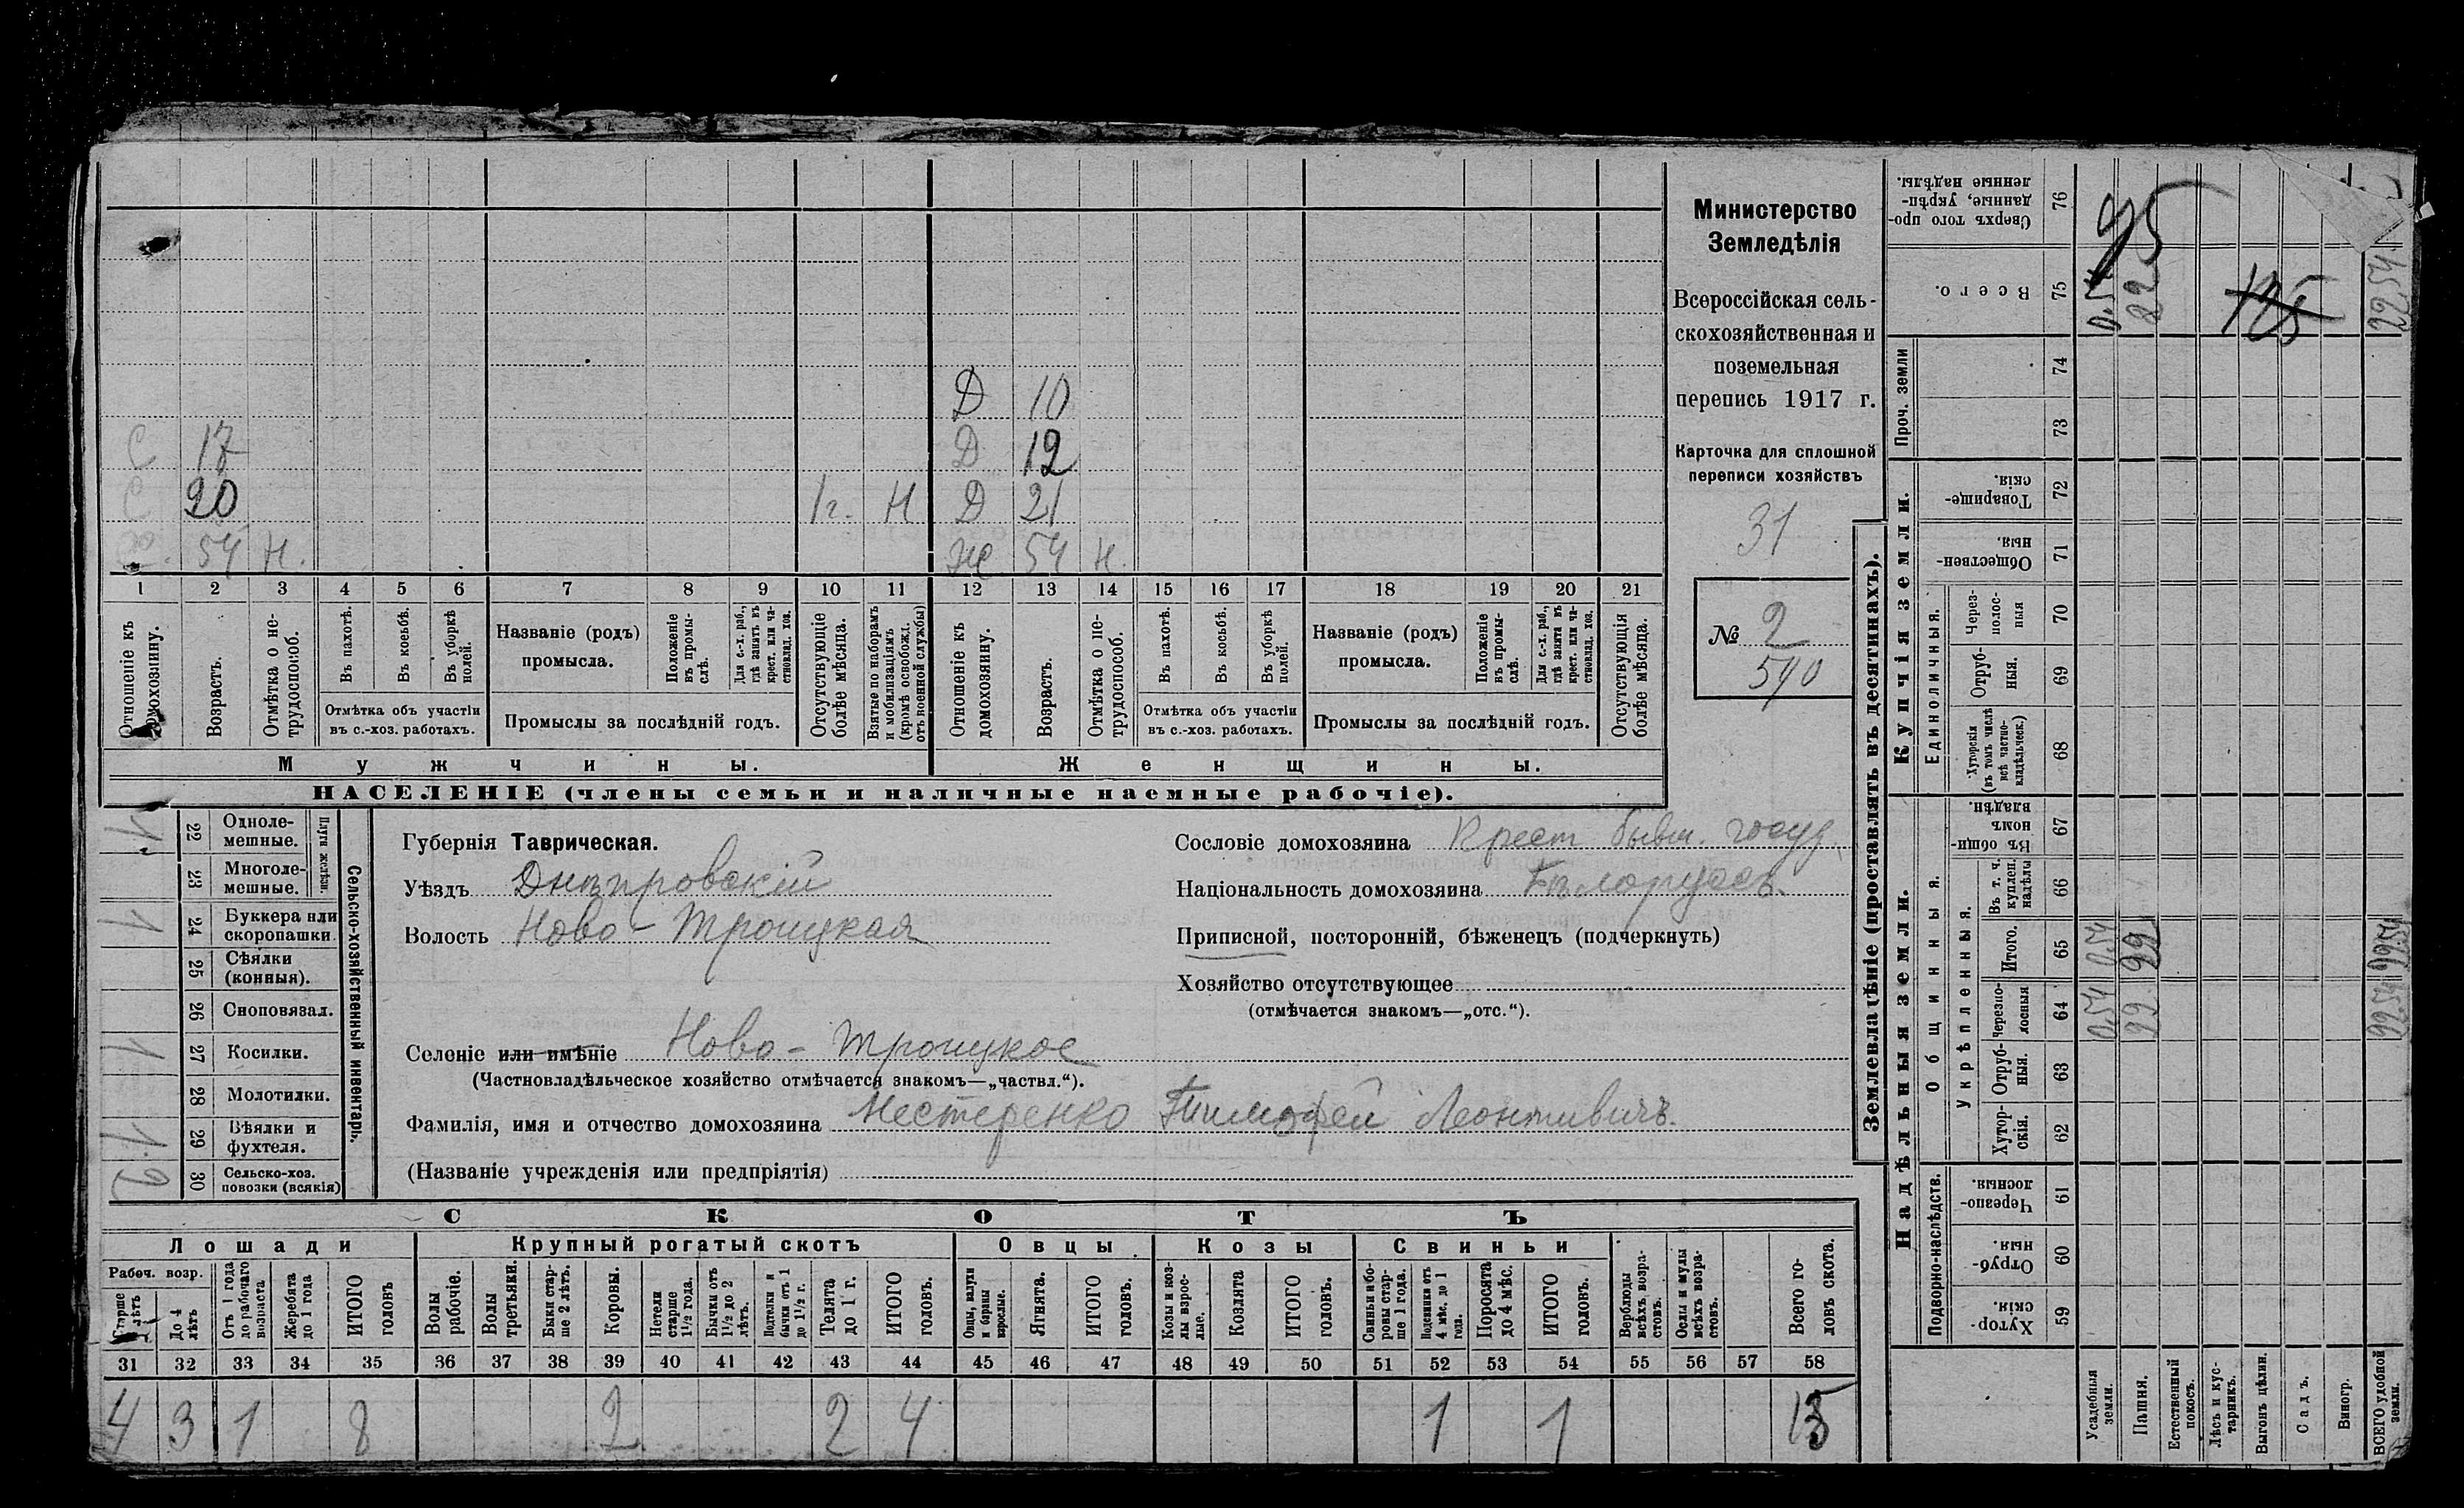 Д 10
С 17 Д 12
С 20 1г. Н Д 21
54 Н. Ж 54 Н.
1 2 3 4 5 6 7 8 9 10 11 12 13 14 15 16 17 18 19 20 21
Отношеніе къ домохозяину.
Возрастъ.
Отмѣтка о не-
трудоспособ.
Въ пахотѣ.
Въ косьбѣ.
Въ уборкѣ
полей.
Отмѣтка объ участіи
въ с.-хоз. работахъ.
Названіе (родъ)
промысла.
Положеніе
въ промы-
слѣ.
Для с.-х. раб.,
гдѣ занятъ въ
крест. или ча-
стновлад. хоз.
Промыслы за послѣдній годъ.
Отсутствующіе
болѣе мѣсяца.
Взятые по наборамъ
и мобилизаціямъ
(кромѣ освобожд.
отъ военной службы)
Отношеніе къ
домохозяину.
Возрастъ.
Отмѣтка о не-
трудоспособ.
Въ пахотѣ.
Въ косьбѣ.
Въ уборкѣ
полей.
Отмѣтка объ участіи
въ с.-хоз. работахъ.
Названіе (родъ)
промысла.
Положеніе
въ промы-
слѣ.
Для с.-х. раб.,
гдѣ занята въ
крест. или ча-
стновлад. хоз.
Промыслы за послѣдній годъ.
Отсутствующія
болѣе мѣсяца.
Мужчины. Женщины.
НАСЕЛЕНІЕ (члены семьи и наличные наемные рабочіе).
Министерство
Земледѣлія
Всероссійская сель-
скохозяйственная и
поземельная
перепись 1917 г.
Карточка для сплошной
переписи хозяйствъ
31
№ 2
590
Сельско-хозяйственный инвентарь.
Плуги желѣзн.
1 22 Одноле-
мешные.
23 Многоле-
мешные.
1 24 Буккера или
скоропашки.
25 Сѣялки
(конныя).
26 Сноповязал.
1 27 Косилки.
28 Молотилки.
1 29 Вѣялки и
фухтеля.
2 30 Сельско-хоз.
повозки (всякія)
Губернія Таврическая.
Уѣздъ Днѣпровскій
Волость Ново-Троицкая
Селеніе или имѣніе Ново-Троицкое
(Частновладѣльческое хозяйство отмѣчается знакомъ—„частвл.“).
Фамилія, имя и отчество домохозяина Нестеренко Тимофей Леонтивичъ.
(Названіе учрежденія или предпріятія)
Сословіе домохозяина Крест. бывш. госуд.
Національность домохозяина Бѣлоруссъ.
Приписной, посторонній, бѣженецъ (подчеркнуть)
Хозяйство отсутствующее
(отмѣчается знакомъ—„отс.“).
СКОТЪ
Лошади
Рабоч. возр.
Старше
лѣтъ
До 4
лѣтъ
Отъ 1 года
до рабочаго
возраста
Жеребята
до 1 года
ИТОГО
головъ
Крупный рогатый скотъ
Волы
рабочіе.
Волы
третьяки.
Быки стар-
ше 2 лѣтъ.
Коровы.
Нетели
старше
1½ года.
Бычки отъ
1½ до 2
лѣтъ.
Подтелки и
бычки отъ 1
до 1½ г.
Телята
до 1 г.
ИТОГО
головъ.
Овцы
Овцы, валухи
и бараны
взрослые.
Ягнята.
ИТОГО
головъ.
Козы
Козы и коз-
лы взрос-
лые.
Козлята
ИТОГО
головъ.
Свиньи
Свиньи и бо-
ровы стар-
ше 1 года.
Подсвинки отъ
4 мѣс. до 1
года.
Поросята
до 4 мѣс.
ИТОГО
головъ.
Верблюды
всѣхъ возра-
стовъ.
Ослы и мулы
всѣхъ возра-
стовъ.
Всего го-
ловъ скота.
31 32 33 34 35 36 37 38 39 40 41 42 43 44 45 46 47 48 49 50 51 52 53 54 55 56 57 58
4 3 1 8 2 2 4 1 1 13
Землевладѣніе (проставлять въ десятинахъ).
Купчія земли.
Надѣльныя земли.
Сверхъ того про-
данные, укрѣп-
ленные надѣлы.
76
Всего.
75
0.54
22
22.54
Проч. земли
74
73
Товарище-
скія.
72
Обществен-
ныя.
71
Единоличныя.
Через-
полос-
ныя
70
Отруб-
ныя.
69
Хуторскія
(въ томъ числѣ
всѣ частно-
владѣльческ.)
68
Общинныя.
Въ общи-
номъ
владѣн.
67
Укрѣпленныя.
Въ т. ч.
куплен.
надѣлы
66
Итого.
65
0.54
22
22.54
Черезпо-
лосныя
64
0.54
22
22.54
Отруб-
ныя.
63
Хутор-
скія.
62
Подворно-наслѣдств.
Черезпо-
лосныя.
61
Отруб-
ныя.
60
Хутор-
скія.
59
Усадебныя
земли.
Пашня.
Естественный
покосъ.
Лѣсъ и кус-
тарникъ.
Выгонъ цѣлин.
Садъ.
Виногр.
ВСЕГО удобной
земли.